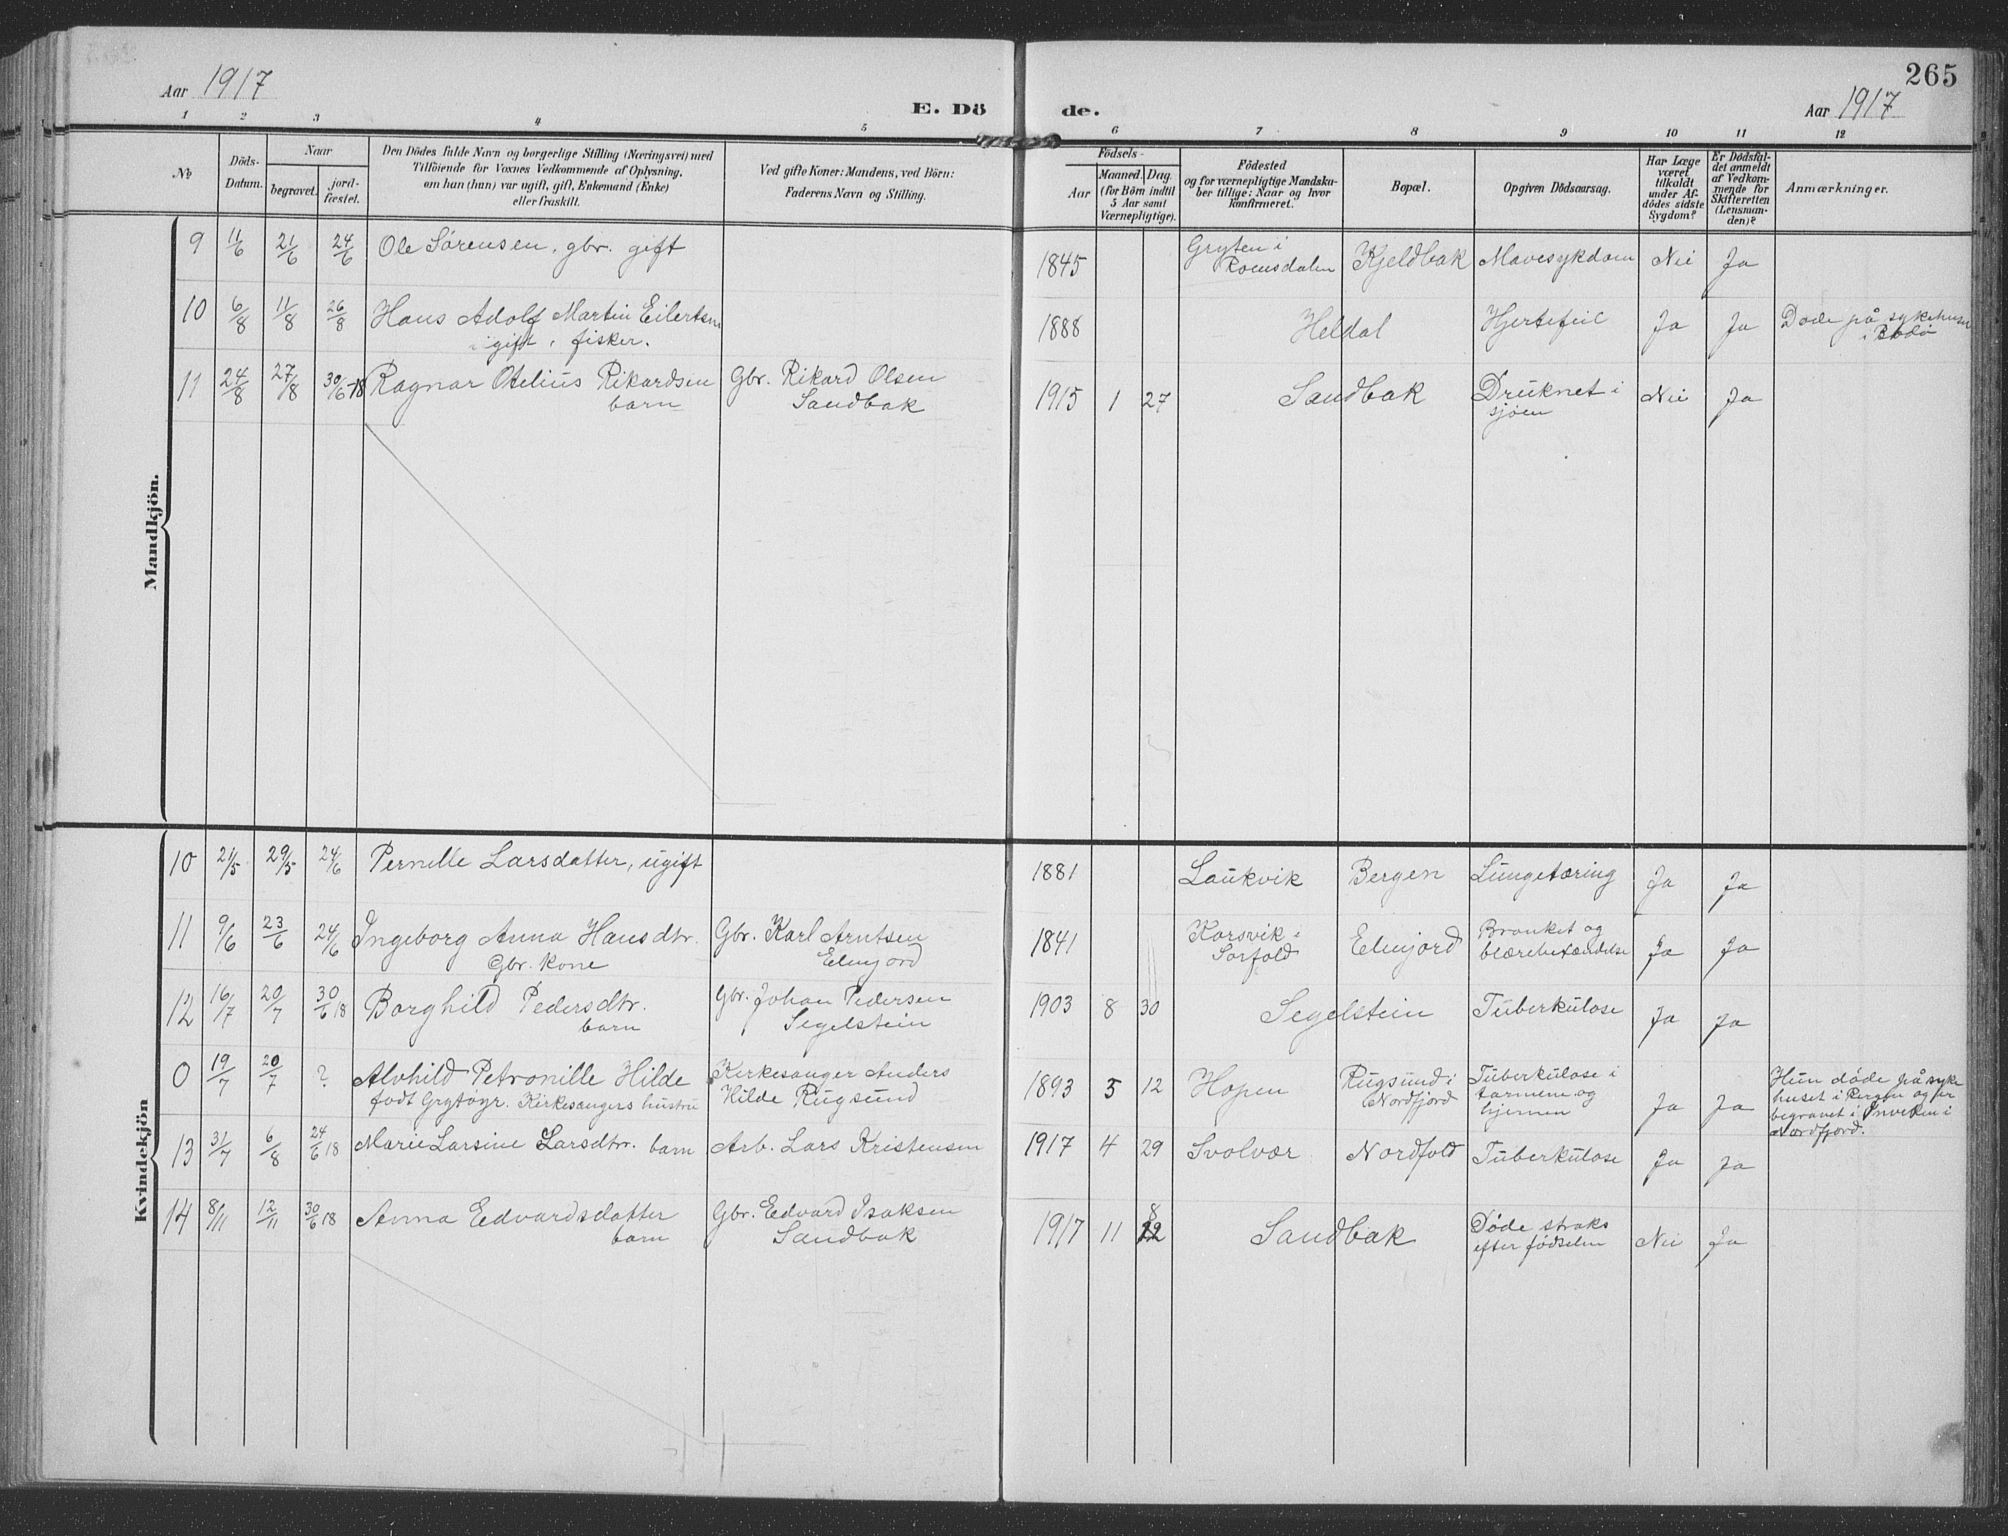 Aar 1917
E. Dö
de.
265
Aar 1917
1 2 3 4 5 6 7 8 9 10 11 12
No
Döds-
Datum.
Naar
begravet.
jord-
fæstet.
Den Dödes fulde Navn og borgerlige Stilling (Næringsvei) med
Tilföiende for Voxnes Vedkommende af Oplysning,
om han (hun) var ugift, gift, Enkemand (Enke)
eller fraskilt.
Ved gifte Koner: Mandens, ved Börn:
Faderens Navn og Stilling.
Födsels-
Aar
Maaned. Dag.
(for Börn indtil
5 Aar samt
Værnepligtige).
Födested
og for værnepligtige Mandska-
ber tillige: Naar og hvor
konfirmeret.
Bopæl.
Opgiven Dödsaarsag.
Har Læge
været
tilkaldt
under Af-
dödes sidste
Sygdom?
Er Dödsfal-
det anmeldt
af Vedkom-
mende for
Skifteretten
(Lensman-
den)?
Anmærkninger.
Mandkjön.
9 11/6 21/6 24/6 Ole Sørensen, gbr. gift 1845 Gryten i
Romsdalen Kjeldbak Mavesykdom Nei Ja
10 6/8 11/8 26/8 Hans Adolf Martin Eilertsen
gift, fisker. 1888 Heldal Hjertefeil Ja Ja Døde på sykehuset
i Bodø
11 24/8 27/8 30/6-18 Ragnar Otelius Rikardsen
barn
Gbr. Rikard Olsen
Sandbak
1915 1 27 Sandbak Druknet i
sjøen Nei Ja
Kvindekjön
10 21/5 29/5 24/6 Pernille Larsdatter, ugift 1881 Laukvik Bergen Lungetæring Ja Ja
11 9/6 23/6 24/6 Ingeborg Anna Hansdtr.
Gbr. kone
Gbr. Karl Arntsen
Elmjord
1841 Korsvik i
Sørfold Elmjord Bronket og
blærebetændelse Ja Ja
12 16/7 20/7 30/6 18 Borghild Pedersdtr.
barn
Gbr. Johan Pedersen
Segelstein
1903 8 30 Segelstein Tuberkulose Ja Ja
0 19/7 20/7 ? Alvhild Petronille Hilde
født Grytøyr. Kirkesangers hustru
Kirkesanger Anders
Hilde Rugsund
1893 5 12 Hopen Rugsund i
Nordfjord Tuberkulose i
tarmene og
hjernen Ja Ja Hun døde på syke
huset i Bergen og er
begravet i i
Nordfjord.
13 31/7 6/8 24/6 18 Marie Larsine Larsdtr. barn Arb. Lars Kristensen 1917 4 29 Svolvær Nordfold Tuberkulose Ja Ja
14 8/11 12/11 30/6 18 Anna Edvardsdatter
barn
Gbr. Edvard Isaksen
Sandbak
1917 11 8
12 Sandbak Døde straks
efter fødselen Nei Ja